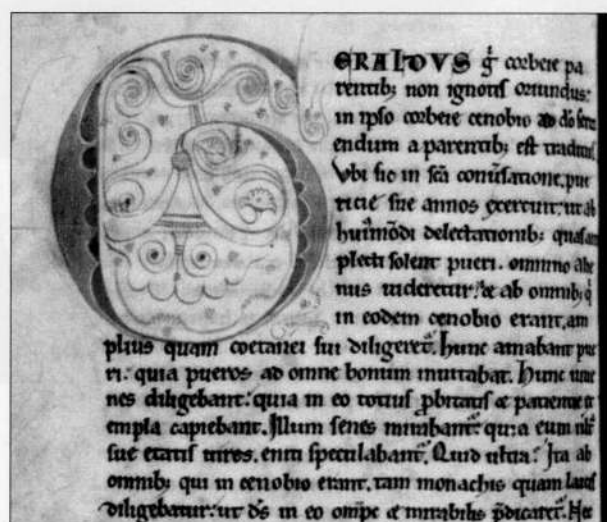 GERALDVS g͛ corbeie pa
rentib; non ignotis oriundus:
in ipso corbeie cenobio ad do
endum a parentib; est traditus
Vbi sic in scā conūsatione, pue
ricie sue annos exercuit: ut ab
huīmōdi delectationib; quas am
plecti solent pueri. omnino alie
nus uideretur: & ab omnib; q̇
in eodem cenobio erant, am
plius quam coetanei sui diligeret᷑. Hunc amabant pue
ri: quia pueros ad omne bonum inuitabat. Hunc iuue
nes diligebant: quia in eo totius ꝓbitatis & patientie ex
empla capiebant. Illum senes mirabant᷑: quia eum
sue etatis uiros, speculabant᷑. Quid ultra? Ita ab
omnib; qui in cenobio erant, tam monachis quam laicis
diligebatur: ut d̄s in eo om̄ps & mirabilis p̄dicaret᷑. Hec